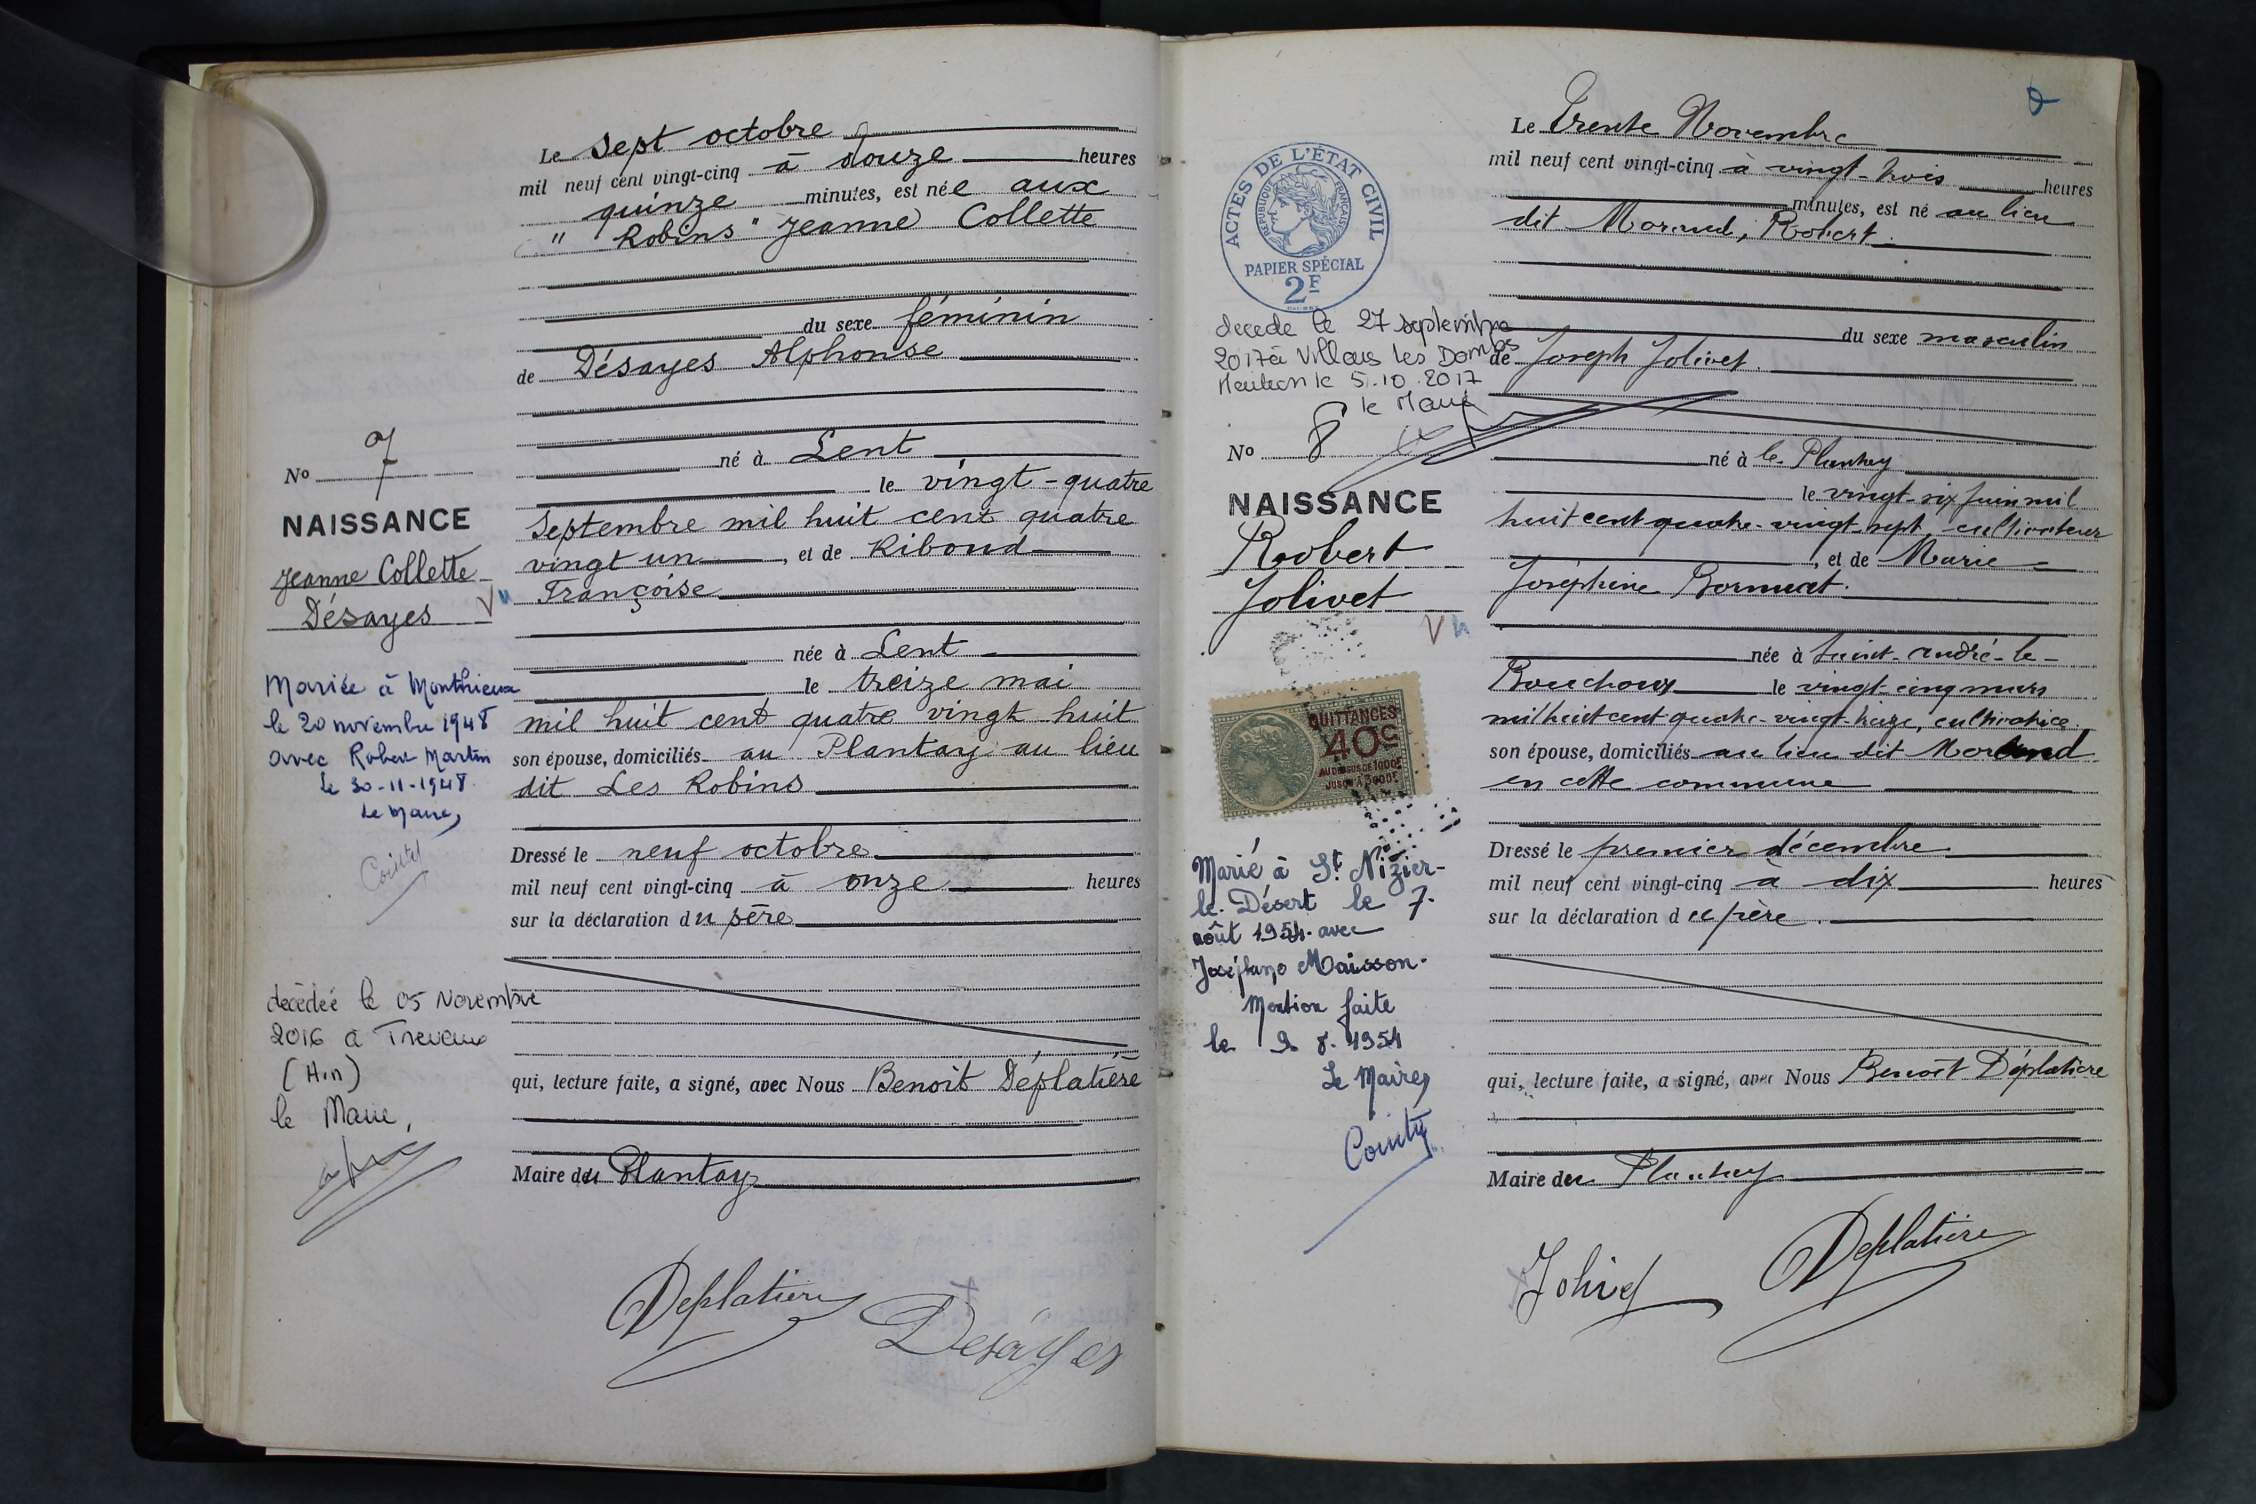 Le sept octobre
mil neuf cent vingt-cinq à douze heures
quinze minutes, est née aux
" Robins " Jeanne Collette
du sexe féminin
de Désayes Alphonse
né à Lent
le vingt-quatre
Septembre mil huit cent quatre
vingt un, et de Riboud
Françoise
née à Lent
le treize mai
mil huit cent quatre vingt huit
son épouse, domiciliés au Plantay au lieu
dit Les Robins
Dressé le neuf octobre
mil neuf cent vingt-cinq à onze heures
sur la déclaration du père
qui, lecture faite, a signé, avec Nous Benoît Déplatière
Maire du Plantay
Deplatière
Desayes
No 7
NAISSANCE
Jeanne Collette
Désayes
Mariée à Monthieux
le 20 novembre 1948
avec Robert Martin
le 30-11-1948
Le Maire,
décédée le 05 Novembre
2016 a Trevoux
(Ain)
le Maire,
ACTES DE L'ÉTAT CIVIL
RÉPUBLIQUE FRANÇAISE
PAPIER SPÉCIAL
2F
décédé le 27 septembre
2017 à Villars les Dombes
Mention le 5.10.2017
le Maire
No 8
NAISSANCE
Robert
Jolivet
QUITTANCES
40c
AU DESSUS DE 1000F
JUSQU'A 3000F
Marié à St Nizier-
le-Désert le 7
août 1954 avec
Maisson.
Mention faite
le 9. 8. 1954
Le Maire,
Le Trente Novembre
mil neuf cent vingt-cinq à vingt-trois heures
minutes, est né au lieu
dit Morand, Robert.
du sexe masculin
de Joseph Jolivet.
né à le Plantay
le vingt-six juin mil
huit cent quatre-vingt-sept cultivateur
, et de Marie
Joséphine
née à Saint-André-le-
Bouchoux le vingt-cinq mars
mil huit cent quatre-vingt-treize, cultivatrice
son épouse, domiciliés au lieu dit Morand
en cette commune
Dressé le premier décembre
mil neuf cent vingt-cinq à dix heures
sur la déclaration du père.
qui, lecture faite, a signé, avec Nous Benoît Déplatière
Maire du Plantay
Jolivet
Deplatière